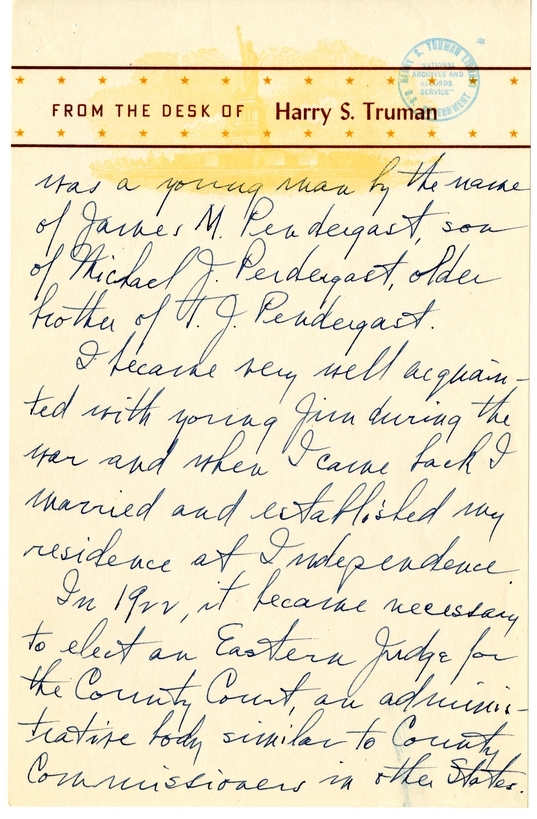 HARRY S. TRUMAN LIBRARY
"NATIONAL
ARCHIVES AND
RECORDS
SERVICE"
U.S. GOVERNMENT
FROM THE DESK OF Harry S. Truman
was a young man by the name
of James M. Pendergast, son
of Michael J. Pendergast, older
brother of T. J. Pendergast.
I became very well acquain-
ted with young Jim during the
war and when I came back I
married and established my
residence at Independence
In 1922, it became necessary
to elect an Eastern Judge for
the County Court, an adminis-
trative body similar to County
Commissioners in other States.